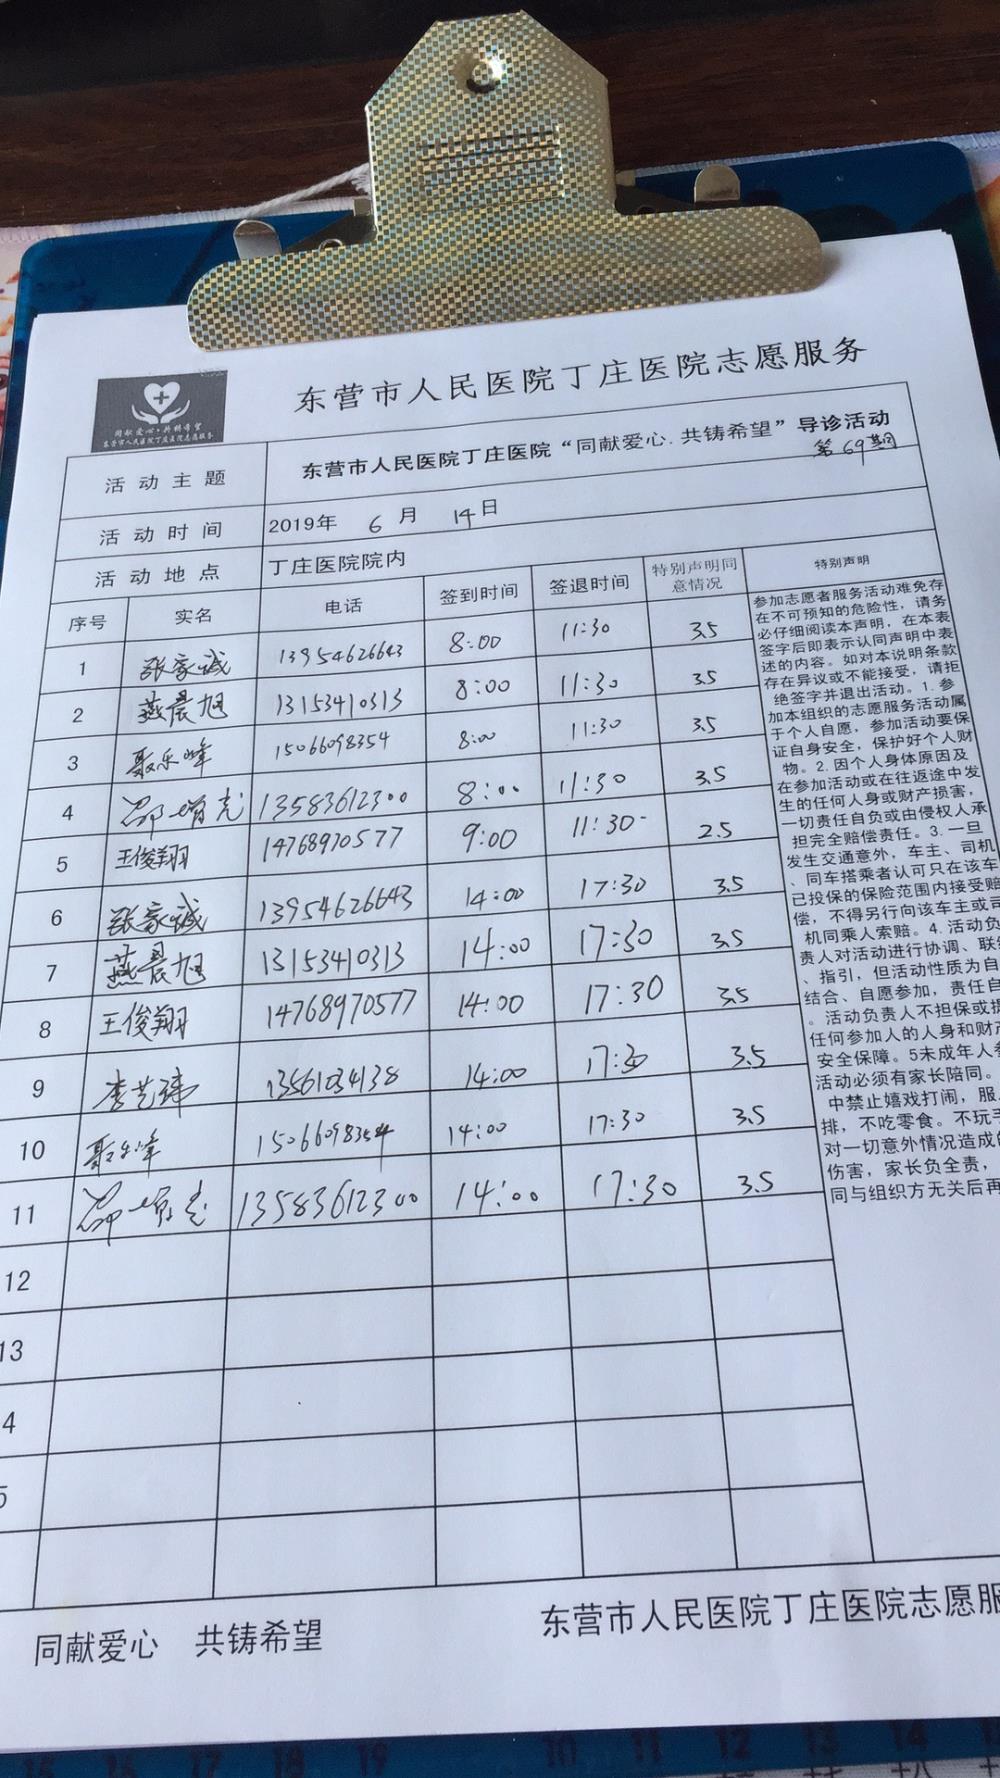 东营市人民医院丁庄医院志愿服务
同献爱心·共铸希望
东营市人民医院丁庄医院志愿服务
活动主题 东营市人民医院丁庄医院“同献爱心.共铸希望”导诊活动
第69期
活动时间 2019年 6 月 14日
活动地点 丁庄医院院内
序号 实名 电话 签到时间 签退时间 特别声明同意情况 特别声明
1 张家诚 13954626643 8:00 11:30 3.5
2 燕晨旭 13153410313 8:00 11:30 3.5
3 聂乐峰 15066098354 8:00 11:30 3.5
4 邵增志 13583612300 8:00 11:30 3.5
5 王俊翔 14768970577 9:00 11:30 2.5
6 张家诚 13954626643 14:00 17:30 3.5
7 燕晨旭 13153410313 14:00 17:30 3.5
8 王俊翔 14768970577 14:00 17:30 3.5
9 李艺玮 13561034138 14:00 17:30 3.5
10 聂乐峰 15066098354 14:00 17:30 3.5
11 邵增志 13583612300 14:00 17:30 3.5
12
13
4
5
参加志愿者服务活动难免存
在不可预知的危险性，请务
必仔细阅读本声明，在本表
签字后即表示认同声明中表
述的内容。如对本说明条款
存在异议或不能接受，请拒
绝签字并退出活动。1.参
加本组织的志愿服务活动属
于个人自愿，参加活动要保
证自身安全，保护好个人财
物。2.因个人身体原因及
在参加活动或在往返途中发
生的任何人身或财产损害，
一切责任自负或由侵权人承
担完全赔偿责任。3.一旦
发生交通意外，车主、司机
、同车搭乘者认可只在该车
已投保的保险范围内接受赔
偿，不得另行向该车主或司
机同乘人索赔。4.活动负
责人对活动进行协调、联
、指引，但活动性质为自
结合、自愿参加，责任自
。活动负责人不担保或提
任何参加人的人身和财产
安全保障。5未成年人参
活动必须有家长陪同。
中禁止嬉戏打闹，服
排，不吃零食。不玩手
对一切意外情况造成的
伤害，家长负全责，
同与组织方无关后再
同献爱心 共铸希望
东营市人民医院丁庄医院志愿服
15 16 17 18 19
10 11 12 13 14 15